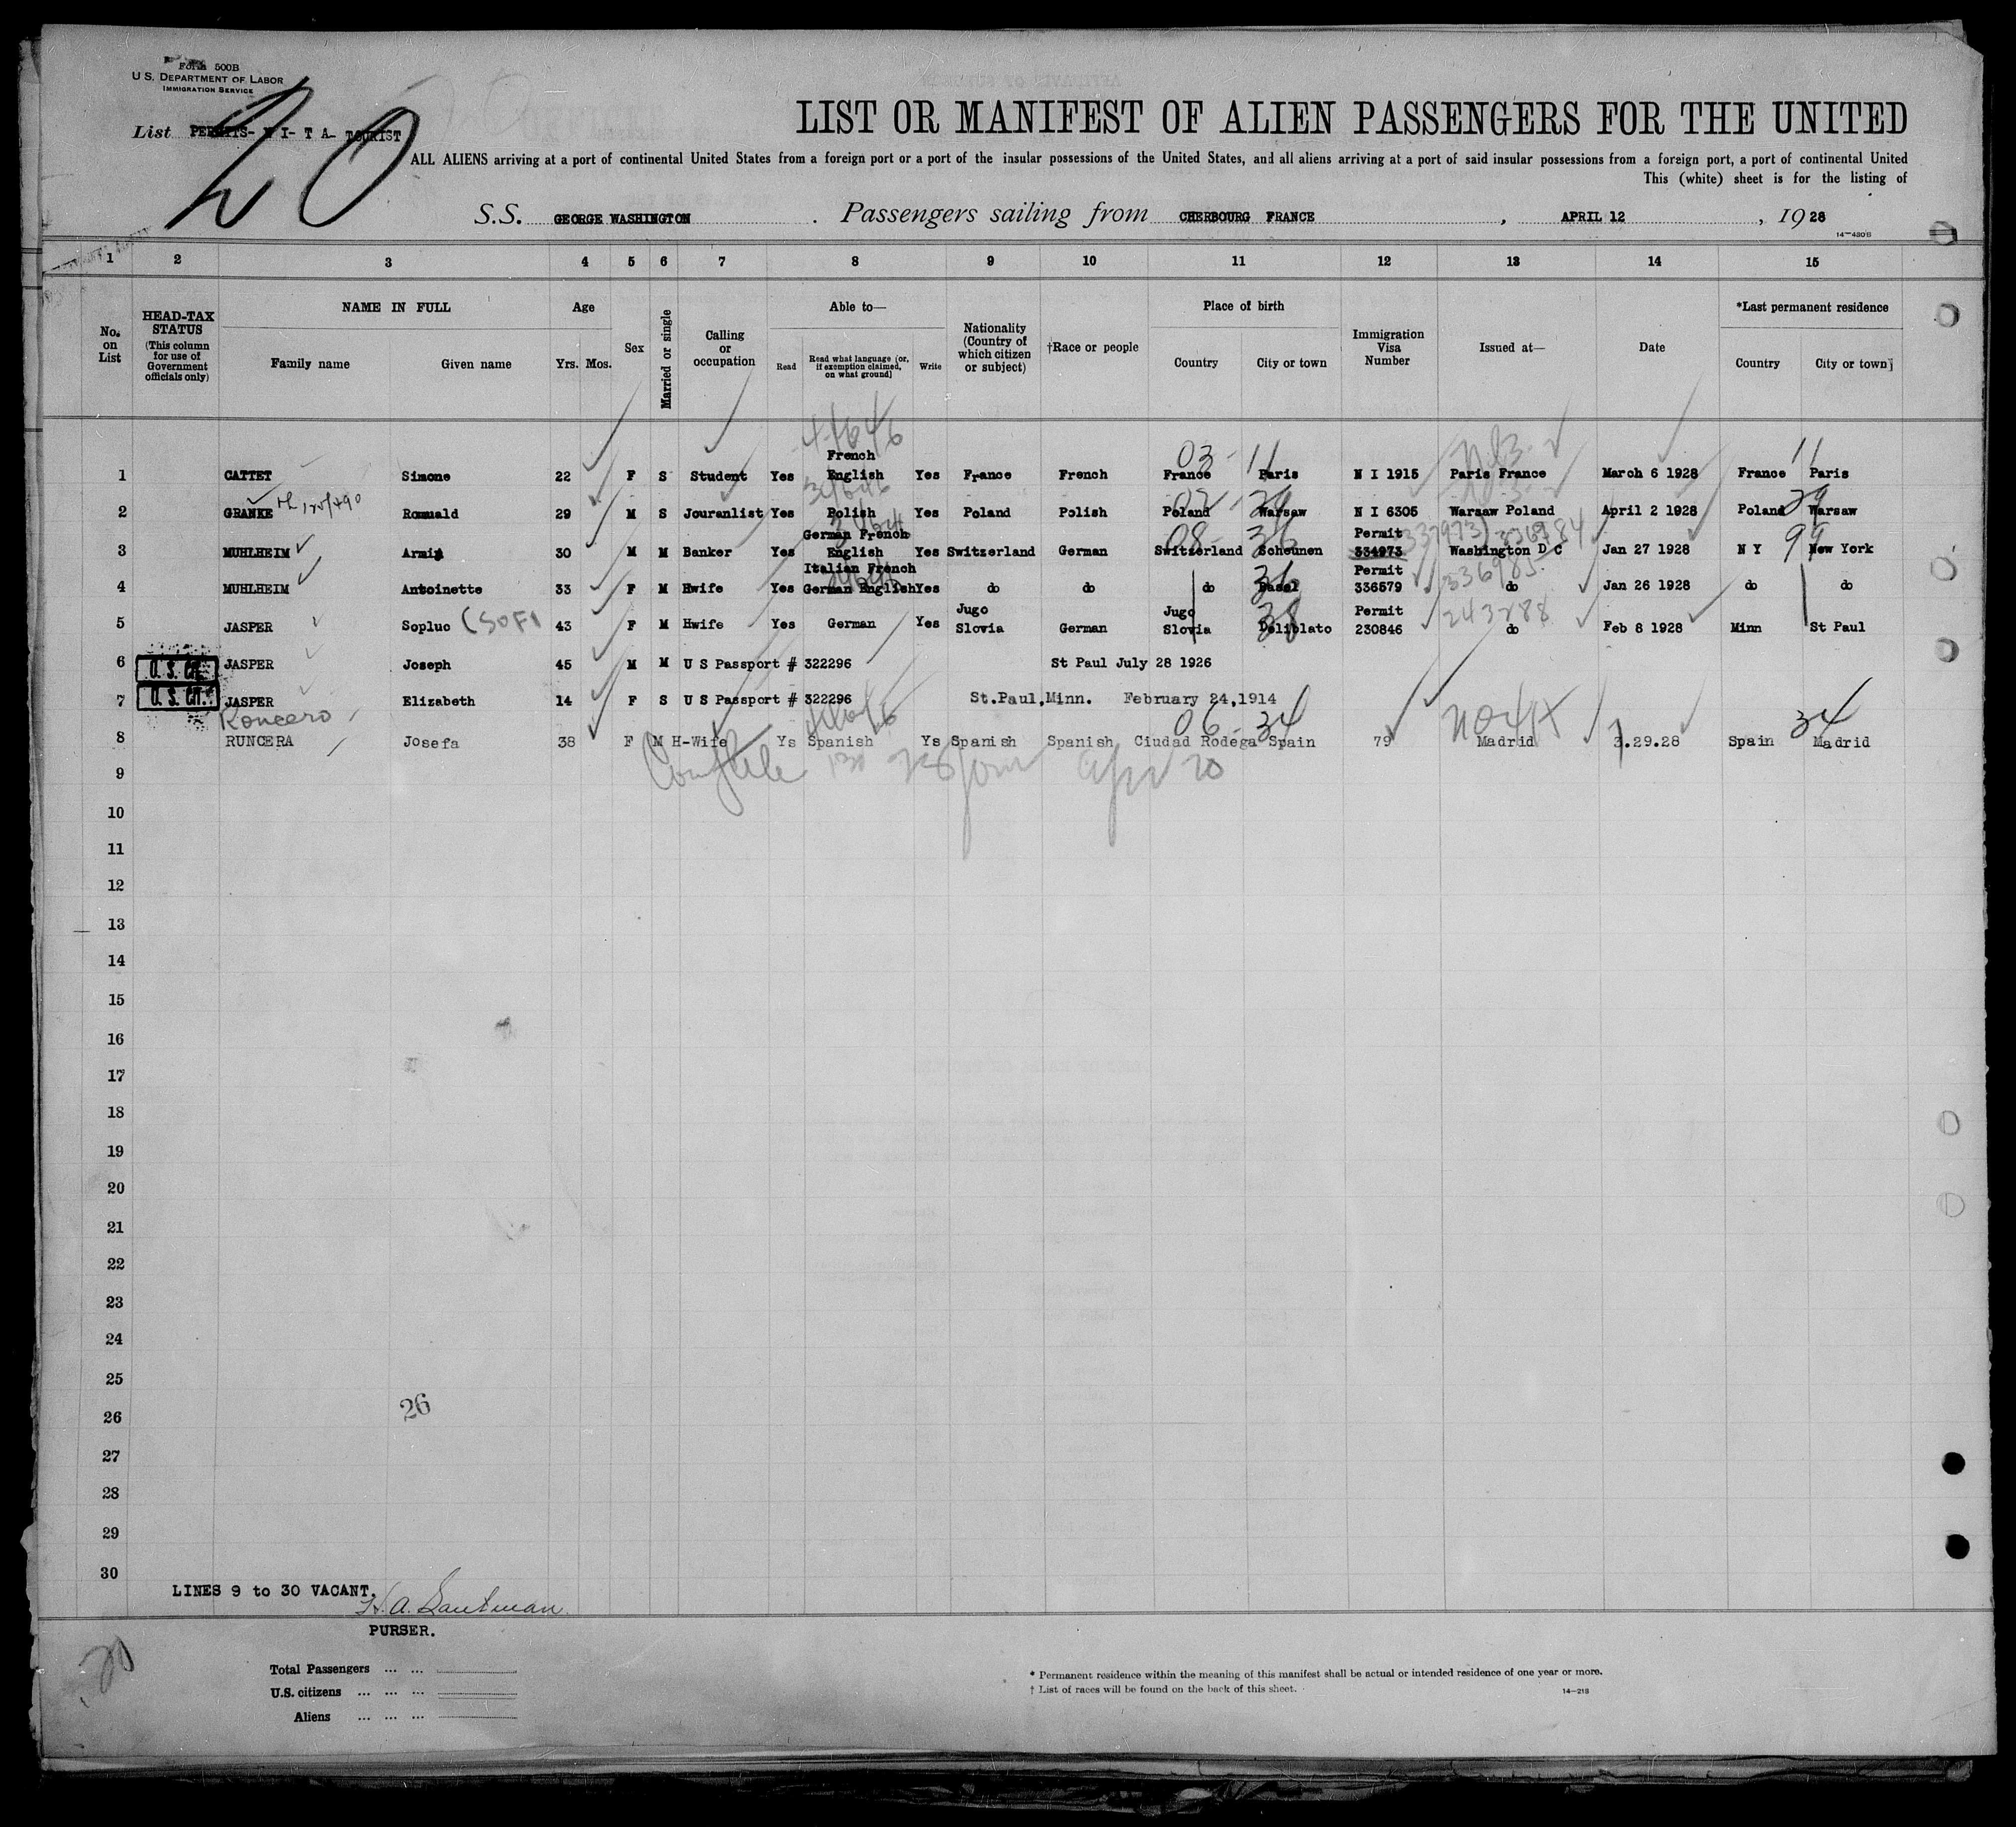 Form 500B
U. S. DEPARTMENT OF LABOR
IMMIGRATION SERVICE
List PERMITS- N I- T A- TOURIST
20
LIST OR MANIFEST OF ALIEN PASSENGERS FOR THE UNITED
ALL ALIENS arriving at a port of continental United States from a foreign port or a port of the insular possessions of the United States, and all aliens arriving at a port of said insular possessions from a foreign port, a port of continental United
This (white) sheet is for the listing of
S.S. GEORGE WASHINGTON . Passengers sailing from CHERBOURG FRANCE , APRIL 12 , 1928
14-480B
1 2 3 4 5 6 7 8 9 10 11 12 13 14 15
No. on List
HEAD-TAX STATUS (This column for use of Government officials only)
NAME IN FULL
Family name Given name
Age
Yrs. Mos.
Sex
Married or single
Calling or occupation
Able to—
Read Read what language (or, if exemption claimed, on what ground) Write
Nationality (Country of which citizen or subject)
†Race or people
Place of birth
Country City or town
Immigration Visa Number
Issued at—
Date
*Last permanent residence
Country City or town
03 - 11 11
French
1 CATTET Simone 22 F S Student Yes English Yes France French France Paris N I 1915 Paris France March 6 1928 France Paris
29 29
2 GRANKE Romuald 29 M S Jouranlist Yes Polish Yes Poland Polish Poland Warsaw N I 6305 Warsaw Poland April 2 1928 Poland Warsaw
German French 08 - 36 Permit 337973 336984 99
3 MUHLHEIM Armin 30 M M Banker Yes English Yes Switzerland German Switzerland Scheunen 334973 Washington D C Jan 27 1928 N Y New York
Italian French 36 Permit 336985
4 MUHLHEIM Antoinette 33 F M Hwife Yes German English Yes do do do Basel 336579 do Jan 26 1928 do do
Jugo Jugo 38 Permit 243288
5 JASPER Sopluc (SOFI 43 F M Hwife Yes German Yes Slovia German Slovia Deliblato 230846 do Feb 8 1928 Minn St Paul
6 U. S. CIT. JASPER Joseph 45 M M U S Passport # 322296 St Paul July 28 1926
7 U. S. CIT. JASPER Elizabeth 14 F S U S Passport # 322296 St.Paul,Minn. February 24,1914
Roncero 06 - 34 34
8 RUNCERA Josefa 38 F M H-Wife Ys Spanish Ys Spanish Spanish Ciudad Rodega Spain 79 Madrid 3.29.28 Spain Madrid
9
10
11
12
13
14
15
16
17
18
19
20
21
22
23
24
25
26
26
27
28
29
30
LINES 9 to 30 VACANT.
PURSER.
20
Total Passengers ... ...
U.S. citizens ... ... ...
Aliens ... ... ...
* Permanent residence within the meaning of this manifest shall be actual or intended residence of one year or more.
† List of races will be found on the back of this sheet.
14-218